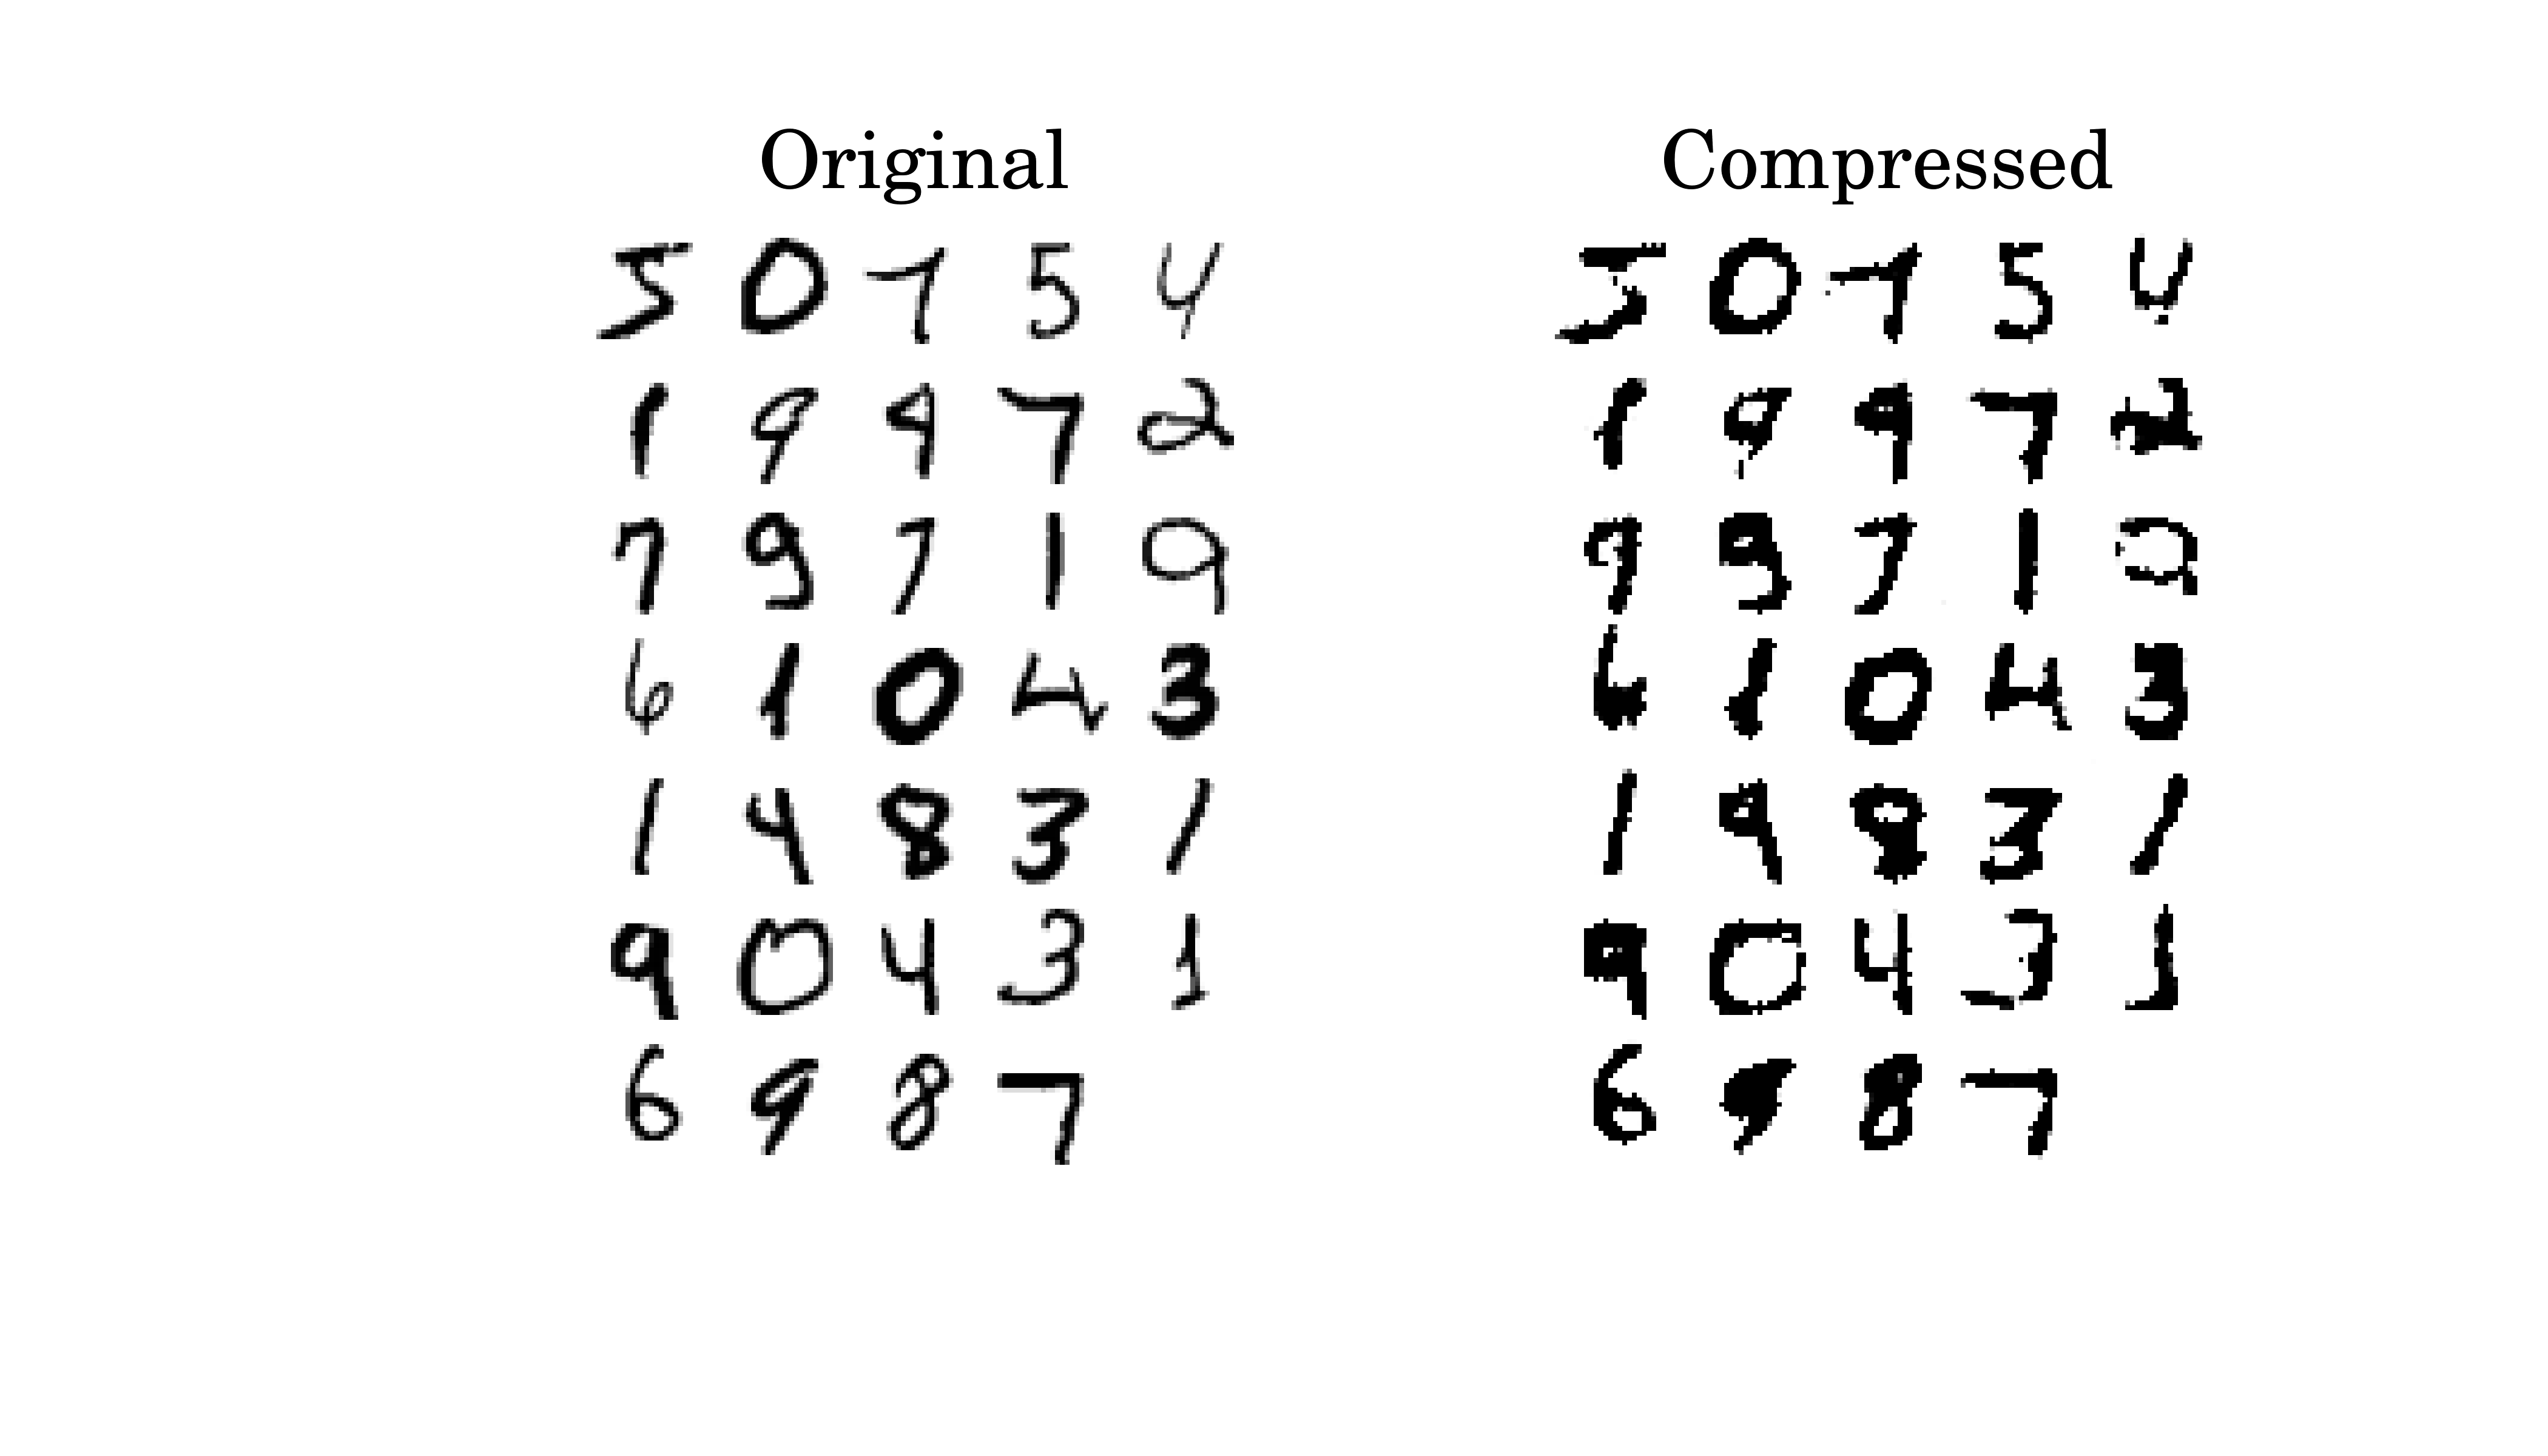 Original
5 0 7 5 4
1 9 9 7 2
7 9 7 1 9
6 1 0 4 3
1 4 8 3 1
9 0 4 3 1
6 9 8 7
Compressed
5 0 7 5 4
1 9 9 7 2
7 9 7 1 9
6 1 0 4 3
1 9 8 3 1
9 0 4 3 1
6 9 8 7